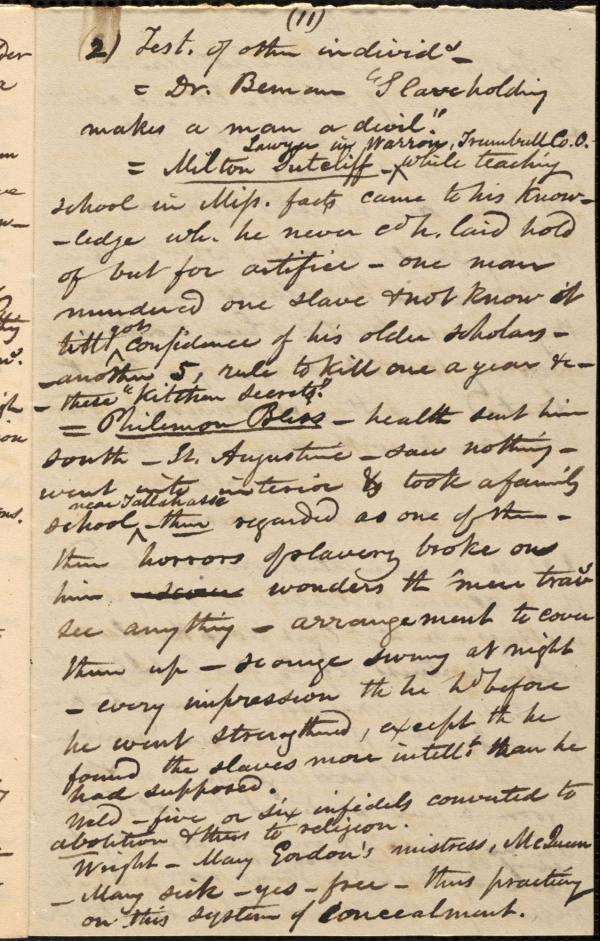 (11)
2) Test. of other individls —
= Dr. Beman "Slaveholding
makes a man a devil."
Lawyer in Warren, Trumbull Co. O.
= Milton Sutcliff — while teaching
school in Miss. facts came to his know-
-ledge wh. he never cd h. laid hold
of but for artifice — one man
murdered one slave & not know it
till gots confidence of his older scholars —
— another 5, rule to kill one a year &c —
— these "Kitchen secrets."
= Philemon Bliss — health sent him
south — St. Augustine — saw nothing —
went into interior & took a family
near Tallahasse
school — then regarded as one of them —
then horrors of slavery broke on
him wonders th mere travs
see anything — arrangement to cover
them up — scourge swung at night
— every impression th he hd before
he went strengthened, except th he
found the slaves more intellt than he
had supposed.
Weld — five or six infidels converted to
abolition & thus to religion.
Wright — Mary Gordon's mistress, McQueen
— Mary sick — yes — free — thus practicing
on this system of concealment.